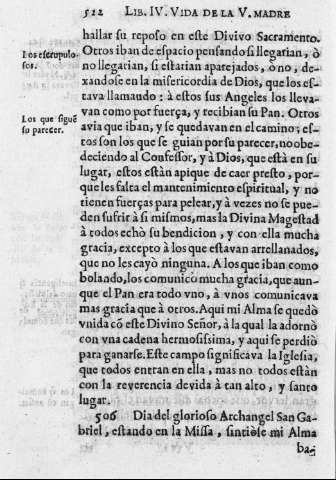 522 LIB. IV. VIDA DE LA V. MADRE
hallar su reposo en este Divivo Sacramento.
Los escrupulosos.
Otros iban de espacio pensando si llegarian, ò
no llegarian, si estarian aparejados, ò no, de-
xandose en la misericordia de Dios, que los es-
tava llamaudo: à estos sus Angeles los lleva-
van como por fuerça, y recibian su Pan. Otros
Los que siguẽ
su parecer.
avia que iban, y se quedavan en el camino; es-
tros son los que se guian por su parecer, no obe-
deciendo al Confessor, y à Dios, que està en su
lugar, estos estàn apique de caer presto, por-
que les falta el mantenimiento espiritual, y no
tienen fuerças para pelear, y à vezes no se pue-
den sufrir à si mismos, mas la Divina Magestad
à todos echò su bendicion, y con ella mucha
gracia, excepto à los que estavan arrellanados,
que no les cayò ninguna. A los que iban como
bolando, los comunicò mucha gracia, que aun-
que el Pan era todo vno, à vnos comunicava
mas gracia que à otros. Aqui mi Alma se quedò
vnida cõ este Divino Señor, à la qual la adornò
con vna cadena hermosissima, y aqui se perdiò
para ganarse. Este campo significava la Iglesia,
que todos entran en ella, mas no todos estàn
con la reverencia devida à tan alto, y santo
lugar.
506 Dia del glorioso Archangel San Ga-
briel, estando en la Missa, sintiòle mi Alma
ba-